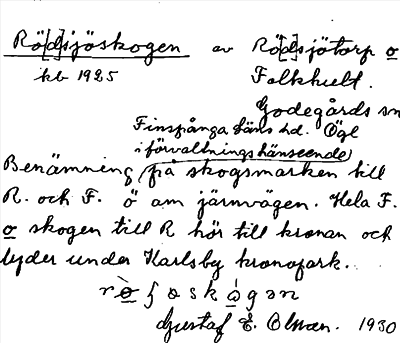 Rö[d]sjöskogen av Rö[d]sjötorp o
kb 1925 Falkhult.
Godegårds sn
Finspånga läns hd. Ögl
i förvaltningshänseende)
Benämning på skogsmarken till
R. och F. ö om järnvägen. Hela F.
o skogen till R hör till kronan och
lyder under Karlsby kronopark.
Gustaf E. Olsson. 1930